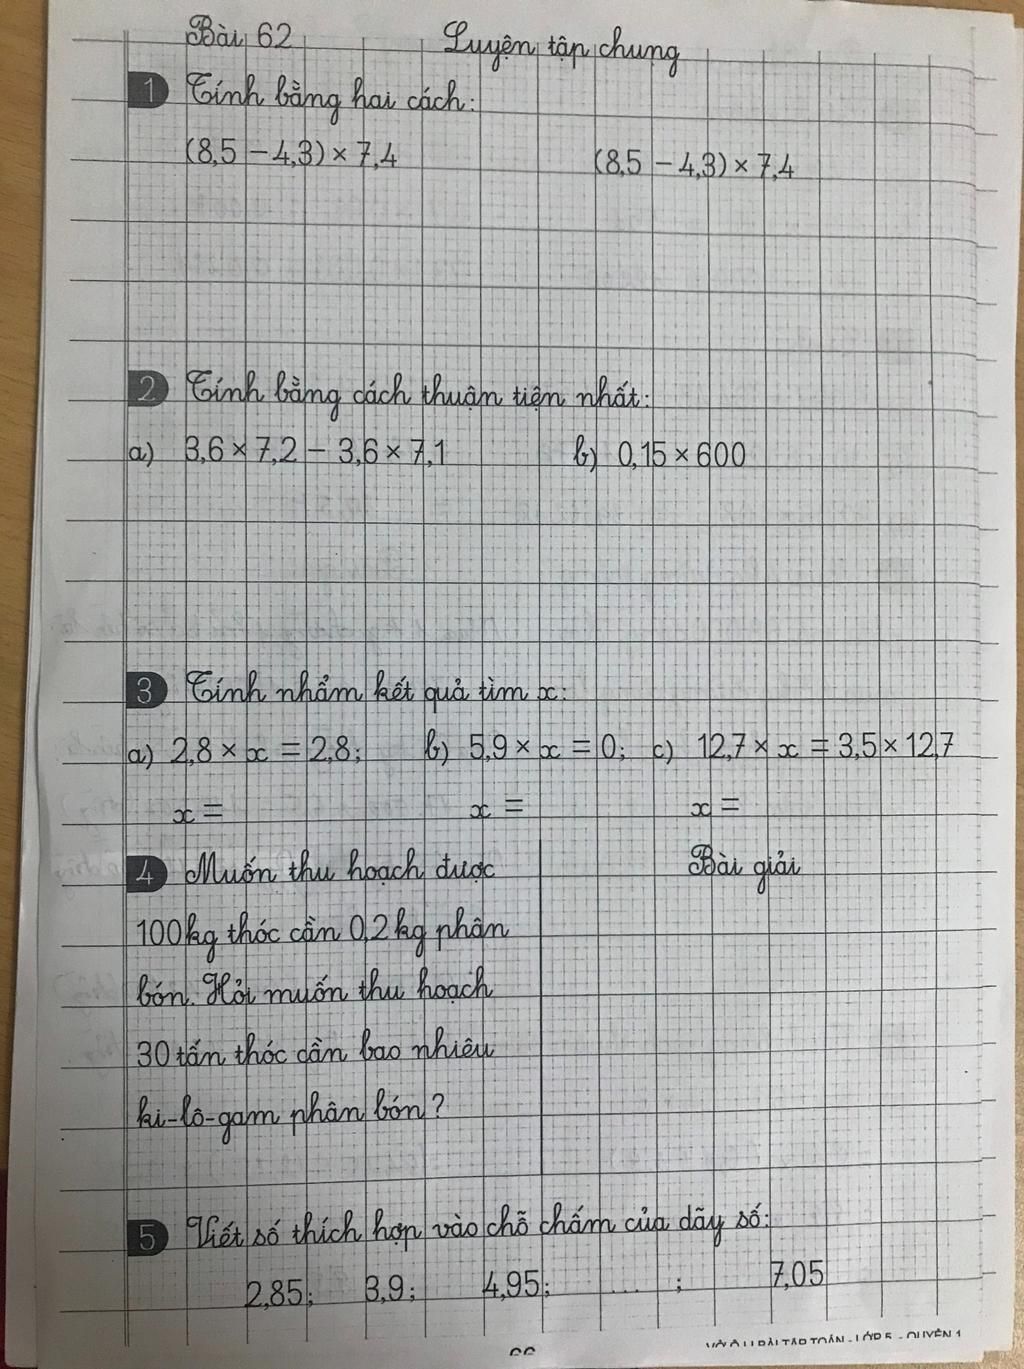 Bài 62 Luyện tập chung
1 Tính bằng hai cách:
(8,5 - 4,3) × 7,4 (8,5 - 4,3) × 7,4
2 Tính bằng cách thuận tiện nhất:
a) 3,6 × 7,2 - 3,6 × 7,1 b) 0,15 × 600
3 Tính nhẩm kết quả tìm x:
a) 2,8 × x = 2,8; b) 5,9 × x = 0; c) 12,7 × x = 3,5 × 12,7
x = x = x =
4 Muốn thu hoạch được Bài giải
100kg thóc cần 0,2kg phân
bón. Hỏi muốn thu hoạch
30 tấn thóc cần bao nhiêu
ki-lô-gam phân bón?
5 Viết số thích hợp vào chỗ chấm của dãy số:
2,85; 3,9; 4,95; ... ; 7,05
VỞ Ô LI BÀI TẬP TOÁN - LỚP 5 - QUYỂN 1